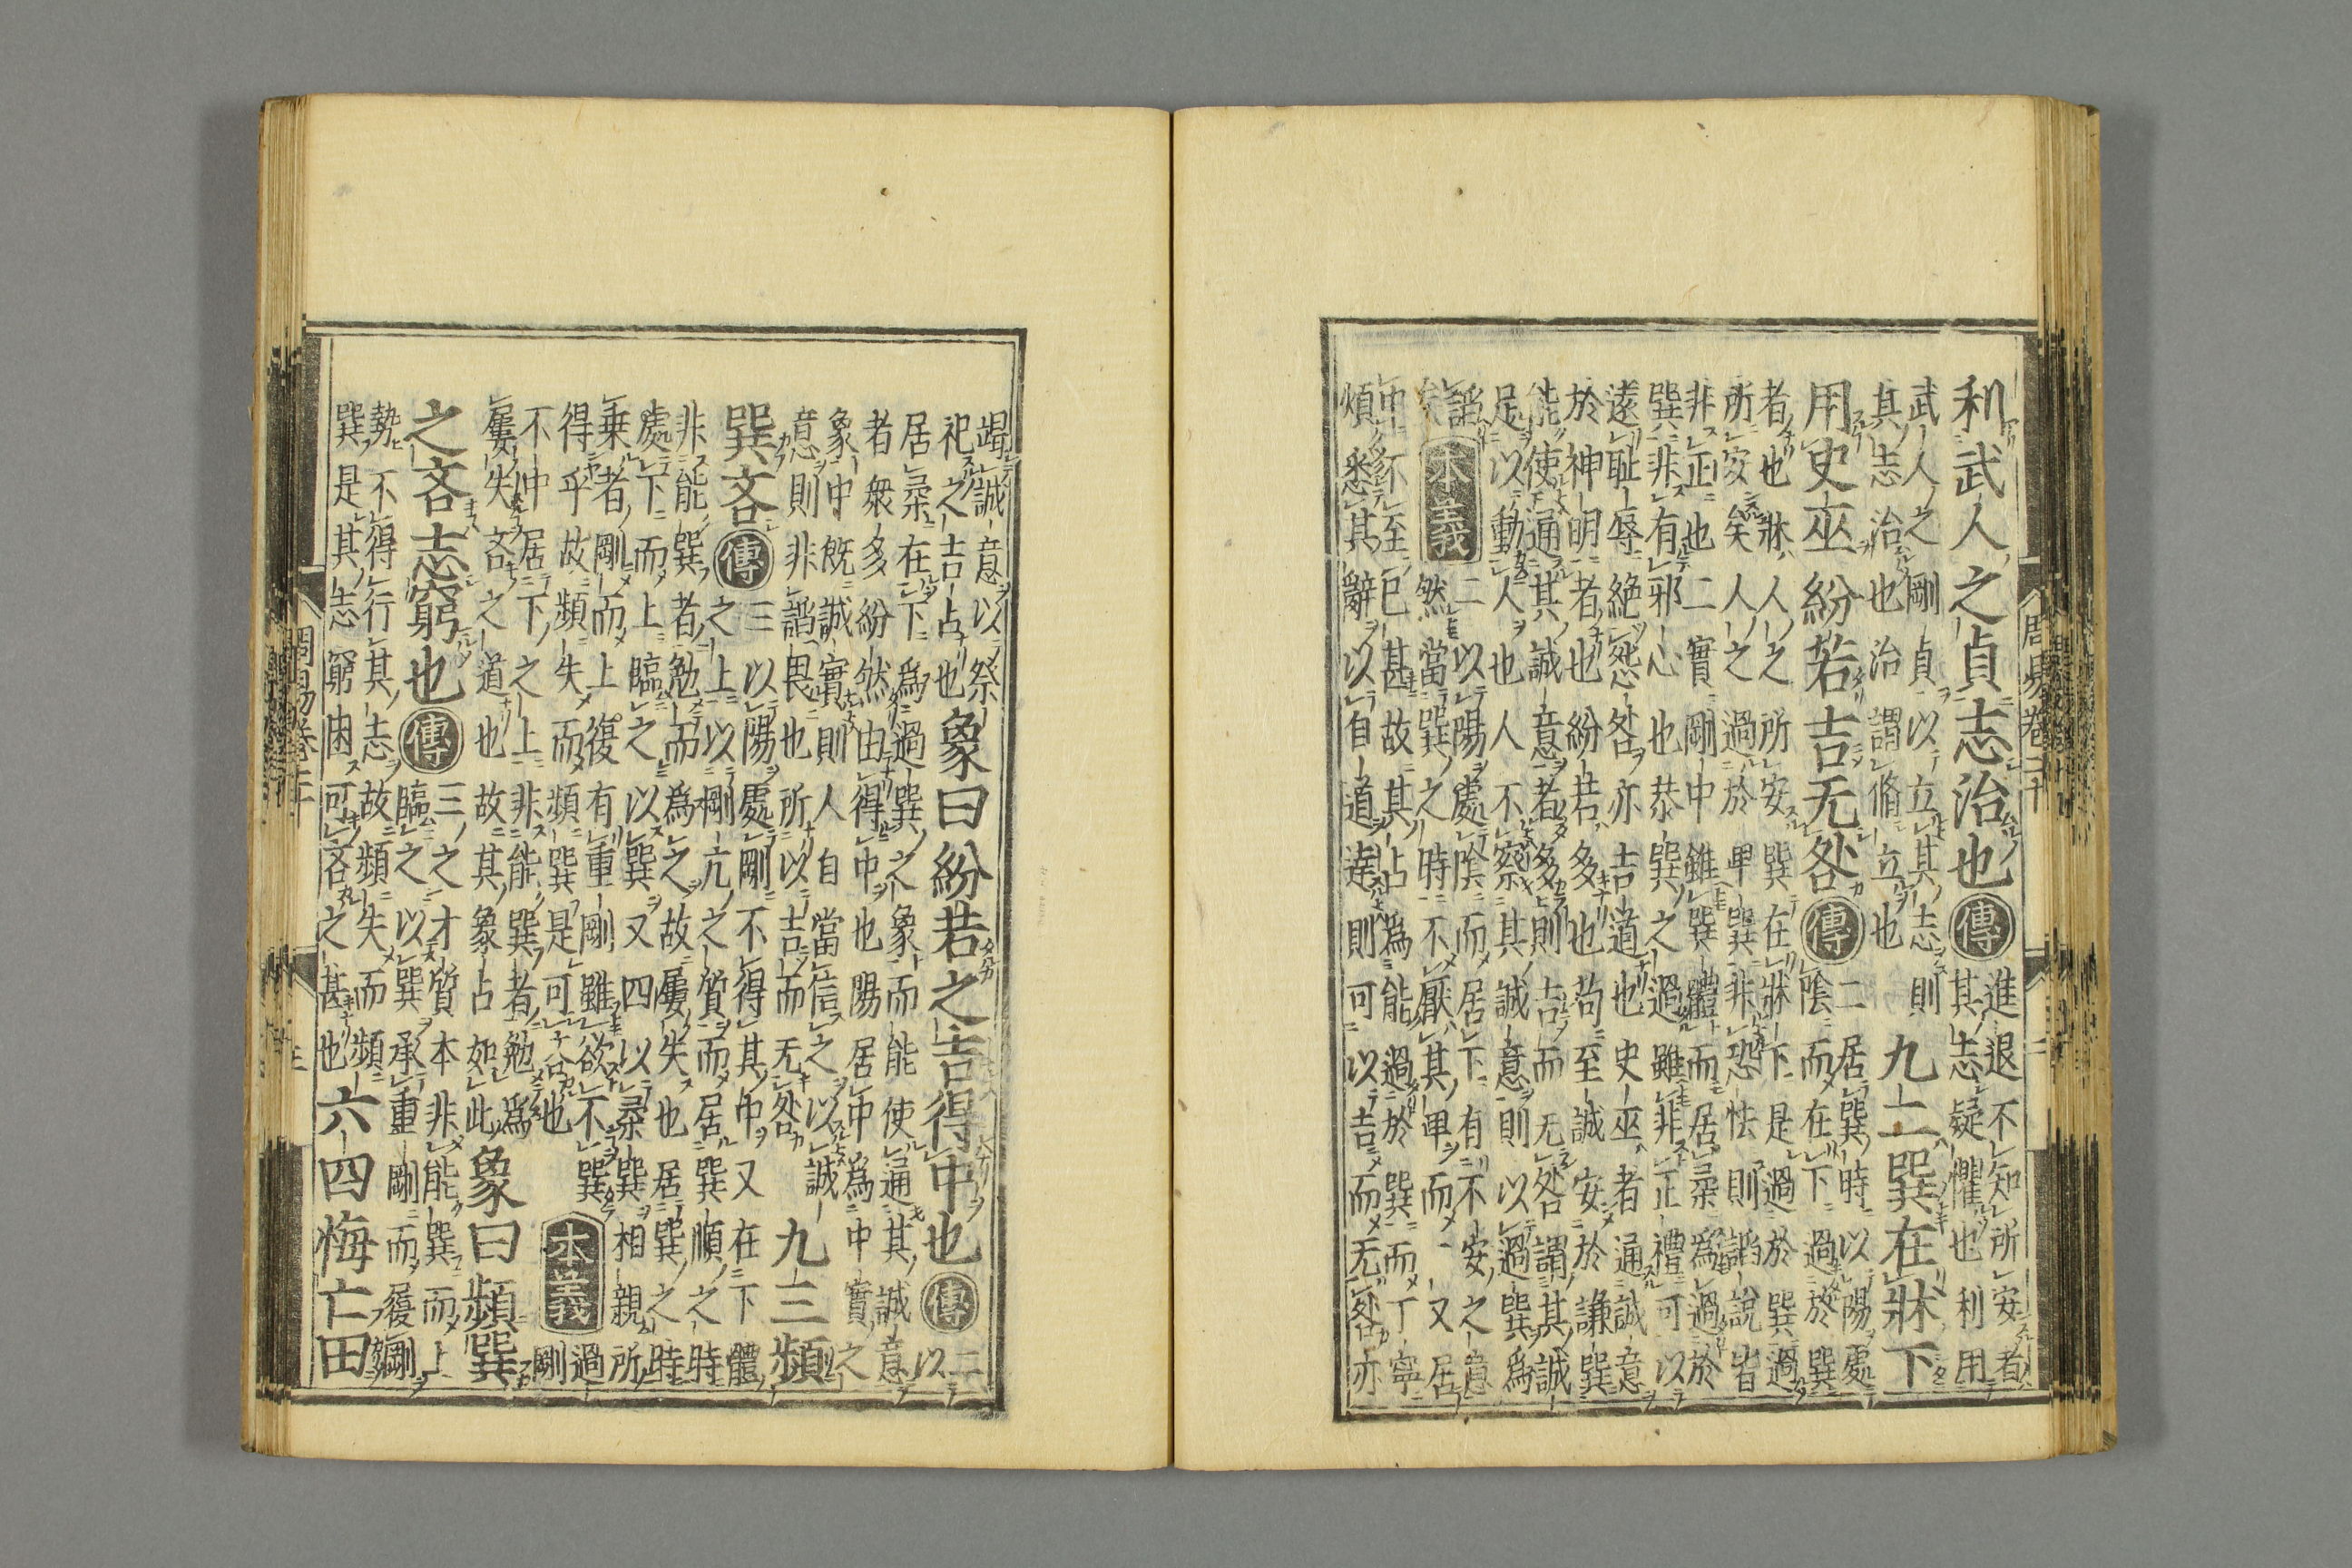 利武人之貞志治也傳進退不知所安者
其志疑懼也利用
武人之剛貞以立其志則
其志治也治謂脩立也九二巽在牀下
用史巫紛若吉无咎傳二居巽時以陽處
陰而在下過於巽
者也牀人之所安巽在牀下是過於巽過
所安矣人之過於卑巽非恐怯則諂說皆
非正也二實剛中雖巽體而居柔為過於
巽非有邪心也恭巽之過雖非正禮可以
遠恥辱絶怨咎亦吉道也史巫者通誠意
於神明者也紛若多也苟至誠安於謙巽
能使通其誠意者多則吉而无咎謂其誠
足以動人也人不察其誠意則以過巽為
諂
矣本義二以陽處陰而居下有不安之意
然當巽之時不厭其卑而又居
中不至已甚故其占為能過於巽而丁寧
煩悉其辭以自道達則可以吉而无咎亦
周易卷二十 二
竭誠意以祭
祀之吉占也象曰紛若之吉得中也傳二以
居柔在下為過巽之象而能使通其誠意
者衆多紛然由得中也陽居中為中實之
象中既誠實則人自當信之以誠
意則非諂畏也所以吉而无咎九三頻
巽吝傳三以陽處剛不得其中又在下體
之上以剛亢之質而居巽順之時
非能巽者勉而為之故屢失也居巽之時
處下而上臨之以巽又四以柔巽相親所
乗者剛而上復有重剛雖欲不巽
得乎故頻失而頻巽是可吝也本義過剛
不中居下之上非能巽者勉為
屢失吝之道也故其象占如此象曰頻巽
之吝志窮也傳三之才質本非能巽而上
臨之以巽承重剛而履剛
勢不得行其志故頻失而頻
巽是其志窮困可吝之甚也六四悔亡田
周易卷二十 三